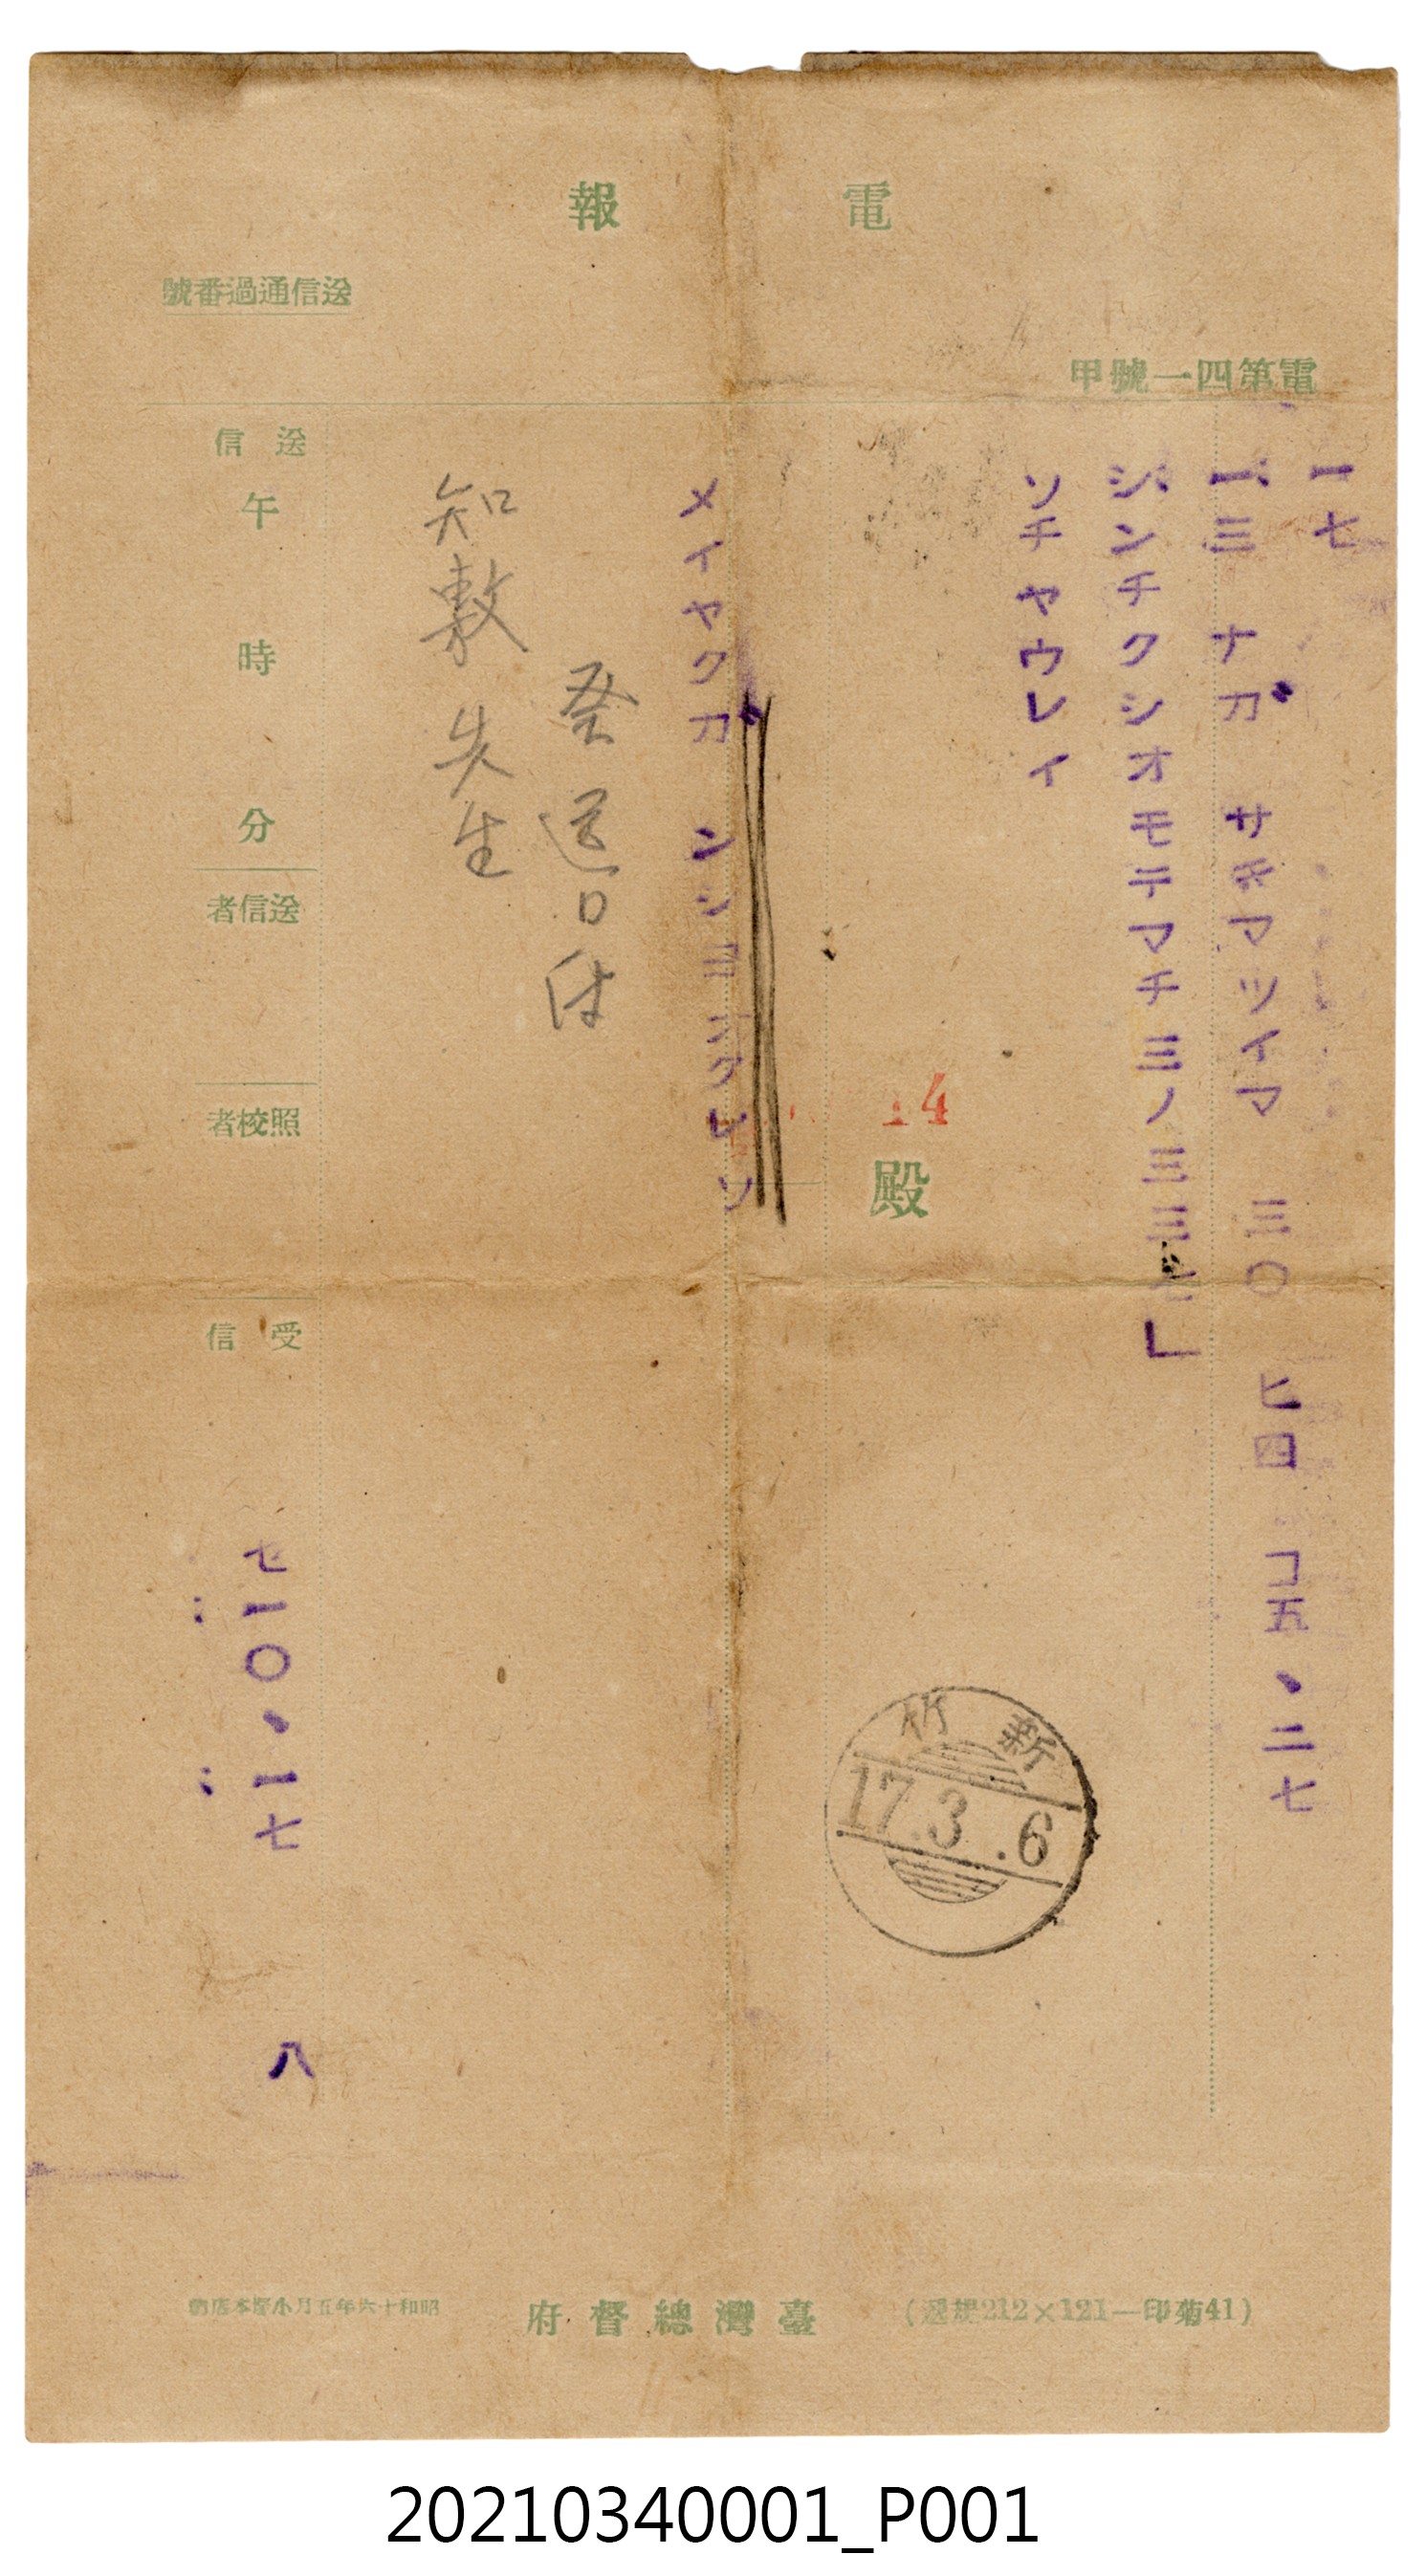 電報
送信通過番號
電第四一號甲
一七
一三 ナガ サキマツイマ 三〇 ヒ四 コ五、二七
シンチクシオモテマチ三ノ三三七」
ソチヤウレイ
殿
14
メイヤクガ ンシヨオクレソ
知敷先生
送信
午
時
分
送信者
照校者
受信
セ一〇、一七
八
新竹
17.3.6
(41菊印—121×212規選)
臺灣總督府
昭和十六年五月小塚本店納
20210340001_P001